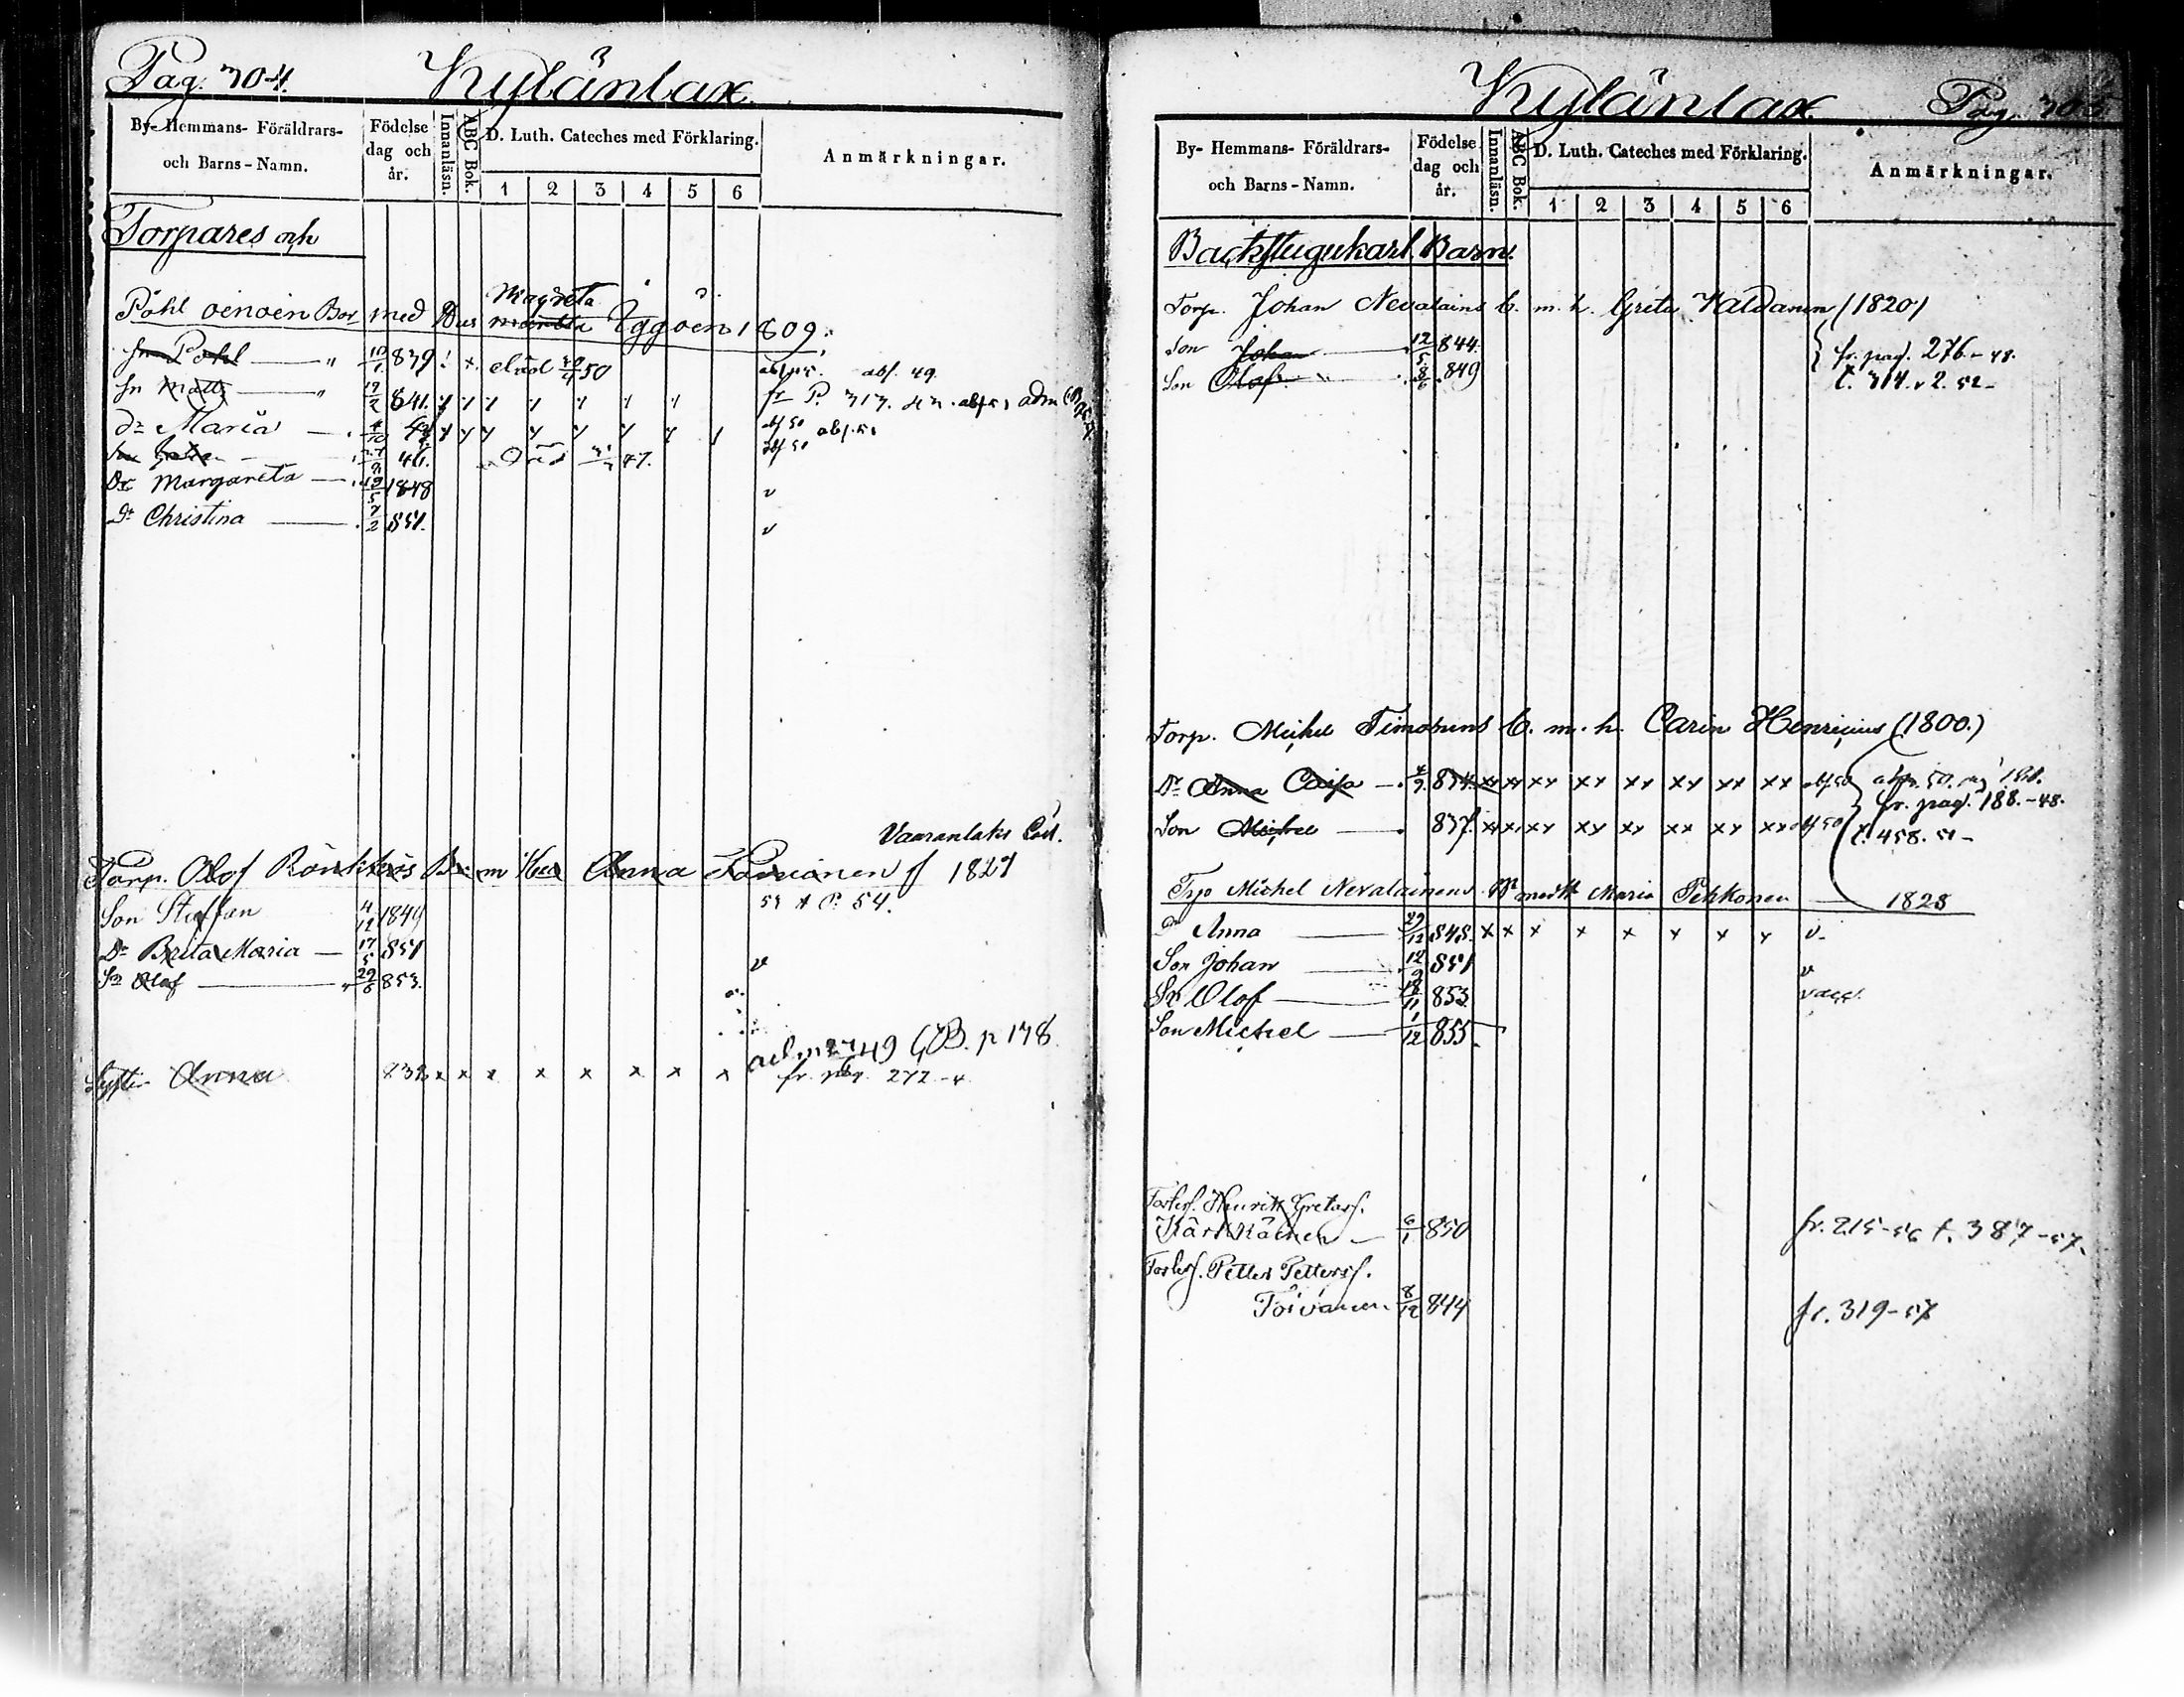 Pag. 304. Kyläntax
By- Hemmans- Föräldrars- och Barns-Namn. Födelse dag och år. Innanläsn. ABC Bok. D. Luth. Cateches med Förklaring. 1 2 3 4 5 6 Anmärkningar.
Torpares och
Magreta
Påhl oinoen Bar med Hus Iggoen 1809.
Sn Pohl — " 10/1 839 död 50 abs. 49.
Sn Matts — " 17/2 841. y y y y y y y fr P. 313.
Dr Maria — 4/10 43 y y y y y y y y abs 50 abs. 51
46. död 47. abs 50
Dr Margareta — 19/5 1848 v
Dr Christina — 7/2 851. v
Vaaranlaks
Torp. Olof Rönkkös B. m Hus Anna 1827
Son Staffan 4/12 1849 53 P. 54.
Dr Brita Maria — 17/5 851 v
Sn Olof — 29/6 853.
adm 49 GB. p 178
Syster Anna 832 x x x x x x x x fr. pag. 272
Kyläntax Pag. 305
By- Hemmans- Föräldrars- och Barns-Namn. Födelse dag och år. Innanläsn. ABC Bok. D. Luth. Cateches med Förklaring. 1 2 3 4 5 6 Anmärkningar.
Backstugukarl. Barn.
Torp. Johan Nevalains b. m. h. Greta (1820)
Son Johan — 12/5 844. fr. pag. 276.-48.
Son Olof 849 t. 314. 52-
Torp. Michel Timonens b. m. h. Carin Henricius (1800.)
Dr Anna Caisa — 4/9 834. xx xx xx xx xx xx xx xx abs 50
fr. pag. 188.-48.
Son Michel — 837. xx xx xx xx xx xx xx xx abs 50 t. 458. 51-
Trp Michel Nevalainens Br medH Maria Pehkonen — 1828
Dr Anna — 29/12 848. x x x x x x y y v.
Son Johan — 12/9 851 v
Sn Olof — 853 vacc.
Son Michel — 1/12 855
Fosters. Henrik Gretasf.
Kärkkäinen — 6/1 850 fr. 215-56 t. 387-57.
Fosters. Petter Pettersf.
Toivanen. 8/12 844 fr. 319-57